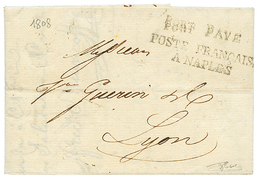 1808
PORT PAYÉ
POSTE FRANÇAISE
A NAPLES
Messieurs
Guerin & C
Lyon